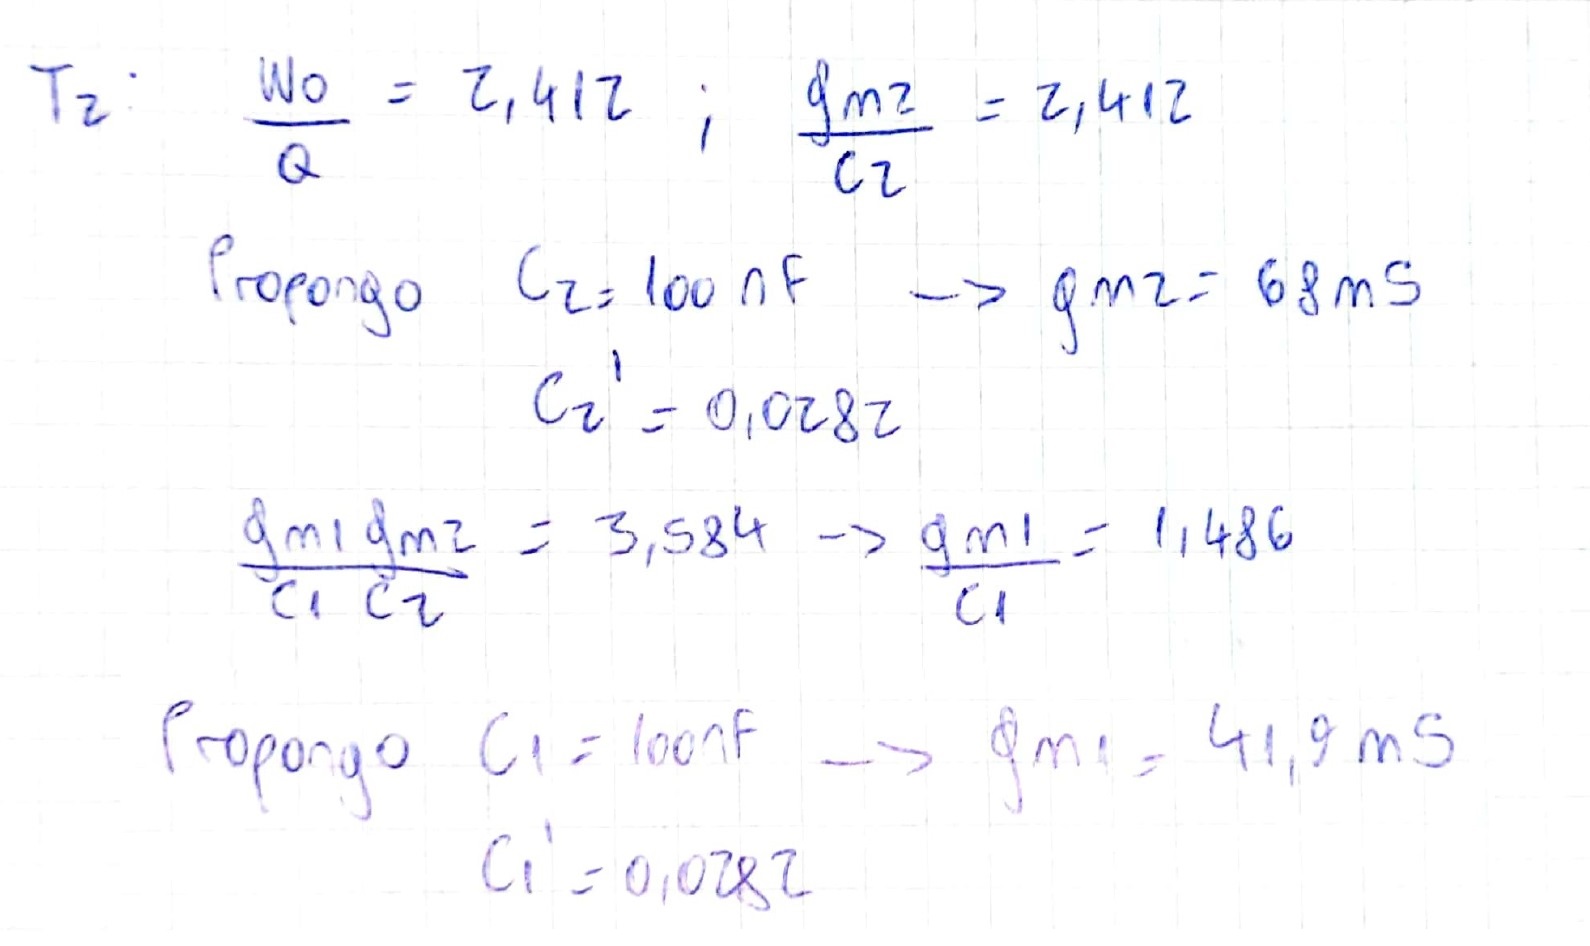 T2: Wo/Q = 2,412 ; gm2/C2 = 2,412
Propongo C2 = 100nF -> gm2 = 68mS
C2' = 0,0282
gm1 gm2/C1 C2 = 3,584 -> gm1/C1 = 1,486
Propongo C1 = 100nF -> gm1 = 41,9mS
C1' = 0,0282